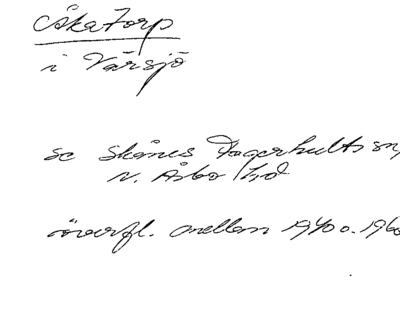 Åkatorp
i Värsjö
se Skånes Fagerhults sn,
N. Åsbo hd
överfl. mellan 1940 o. 1960